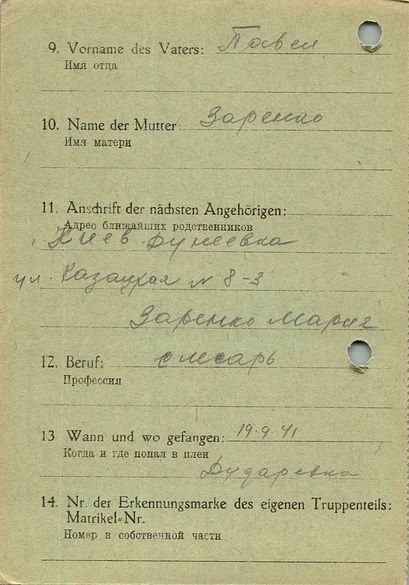 9. Vorname des Vaters: Павел
Имя отца
10. Name der Mutter: Заренко
Имя матери
11. Anschrift der nächsten Angehörigen:
Адрес ближайших родственников
Киев
ул. Казацкая № 8-3
Заренко Мария
12. Beruf: слесарь
Профессия
13 Wann und wo gefangen: 19.9.41
Когда и где попал в плен
Дударевка
14. Nr. der Erkennungsmarke des eigenen Truppenteils:
Matrikel-Nr.
Номер в собственной части